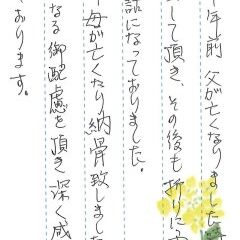 年前 父が亡くなりました
して頂き、その後も折りに
話になっておりました。
母が亡くなり納骨致しました
なる御配慮を頂き深く感
おります。